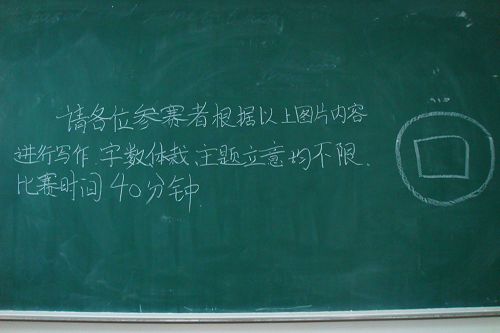 请各位参赛者根据以上图片内容
进行写作.字数体裁、主题立意均不限.
比赛时间40分钟.